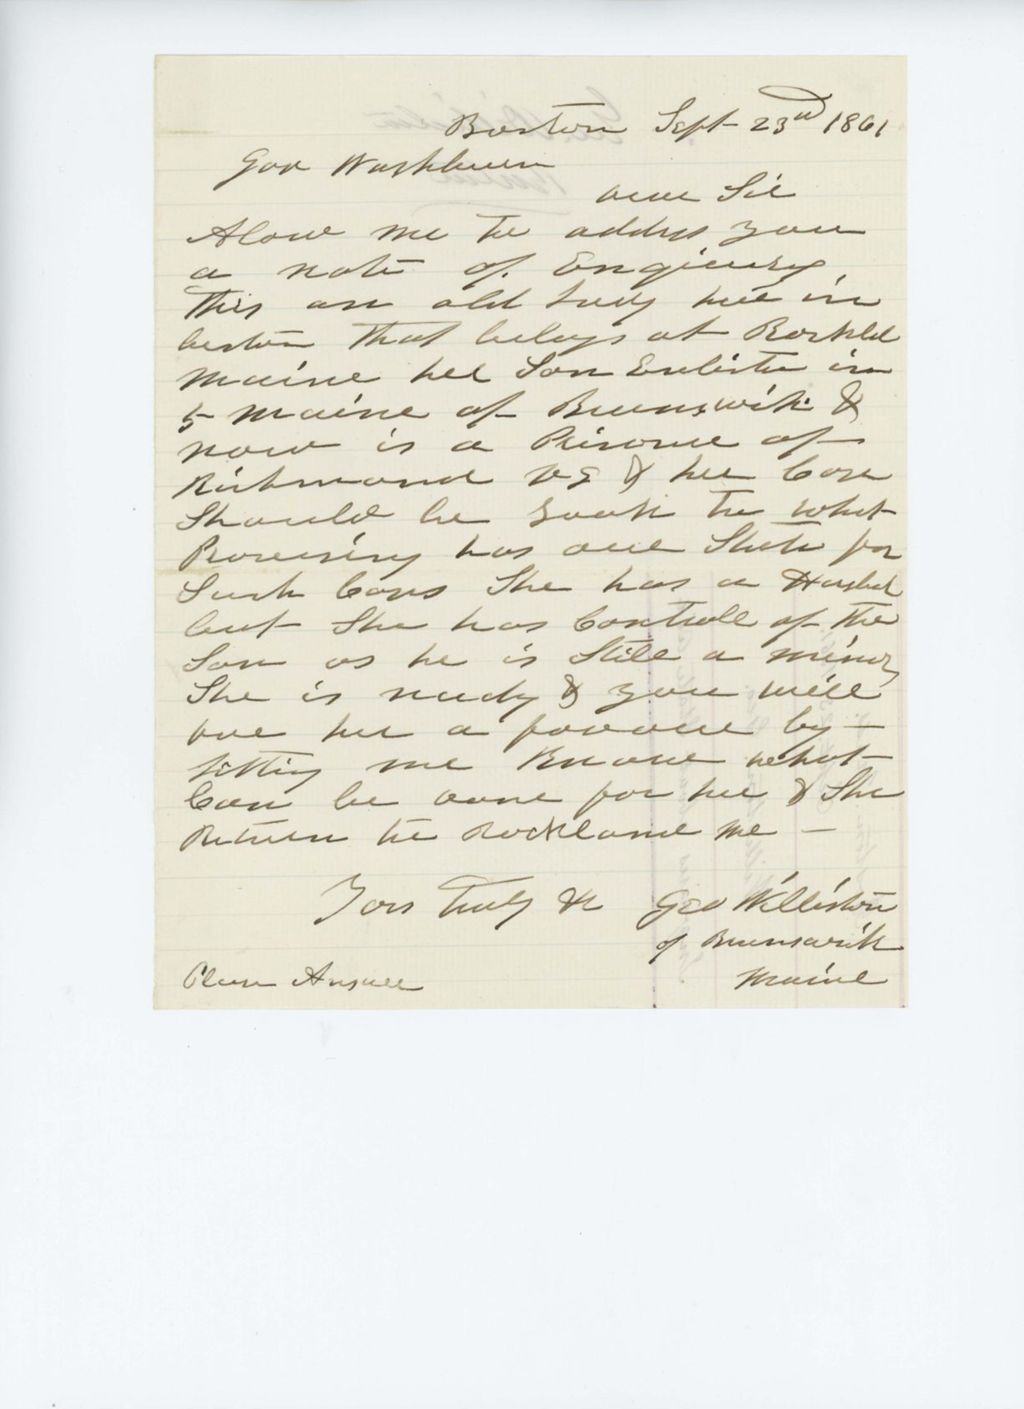 Boston Sept 23rd 1861
Gov Washburn
Dear Sir
Alow me to addres you
a note of Enqiuery
this an old Lady here in
boston that belogs at Rockld
Maine her Son Enliste in
5 Maine of Brunswik &
now is a Prisoner of
Richmond & her Case
Should be to what
has our State for
Such Cases She has a Husbd
but She has Controll of the
Son as he is Still a minor
She is needy & you will
due her a favour by
letting me Know what
Can be done for her & She
Return to Rockland Me -
Yors Truly &c Geo Williston
of Brunswik
Maine
Please Answer